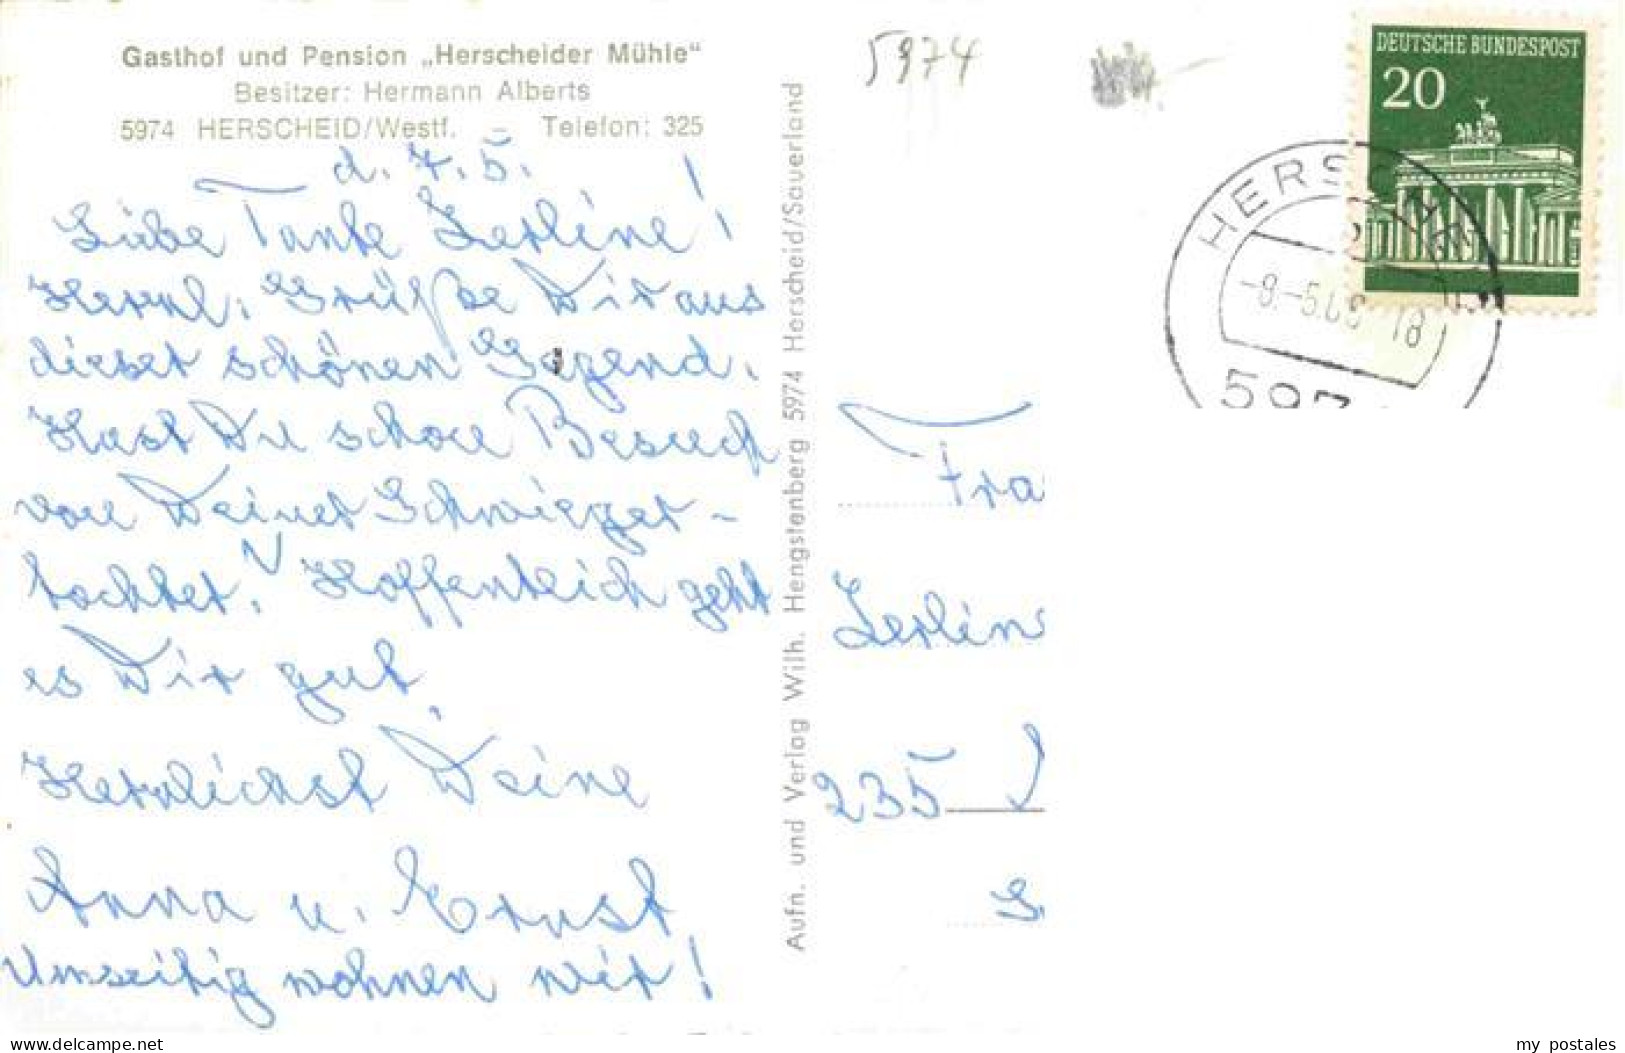 Gasthof und Pension „Herscheider Mühle“
Besitzer: Hermann Alberts
5974 HERSCHEID/Westf. - Telefon: 325
d. 7. 5.
Liebe Tante Zerline!
Herzl. Grüße Dir aus
dieser schönen Gegend.
Hast Du schon Besuch
von Deiner Schwieger-
tochter. Hoffentlich geht
es Dir gut.
Herzlichst Deine
Anna u. Ernst
Umseitig wohnen wir!
Aufn. und Verlag Wilh. Hengstenberg 5974 Herscheid/Sauerland
5974
DEUTSCHE BUNDESPOST
20
HERSCHEID
-8.-5.68 18
597
Fra
Zerline
235